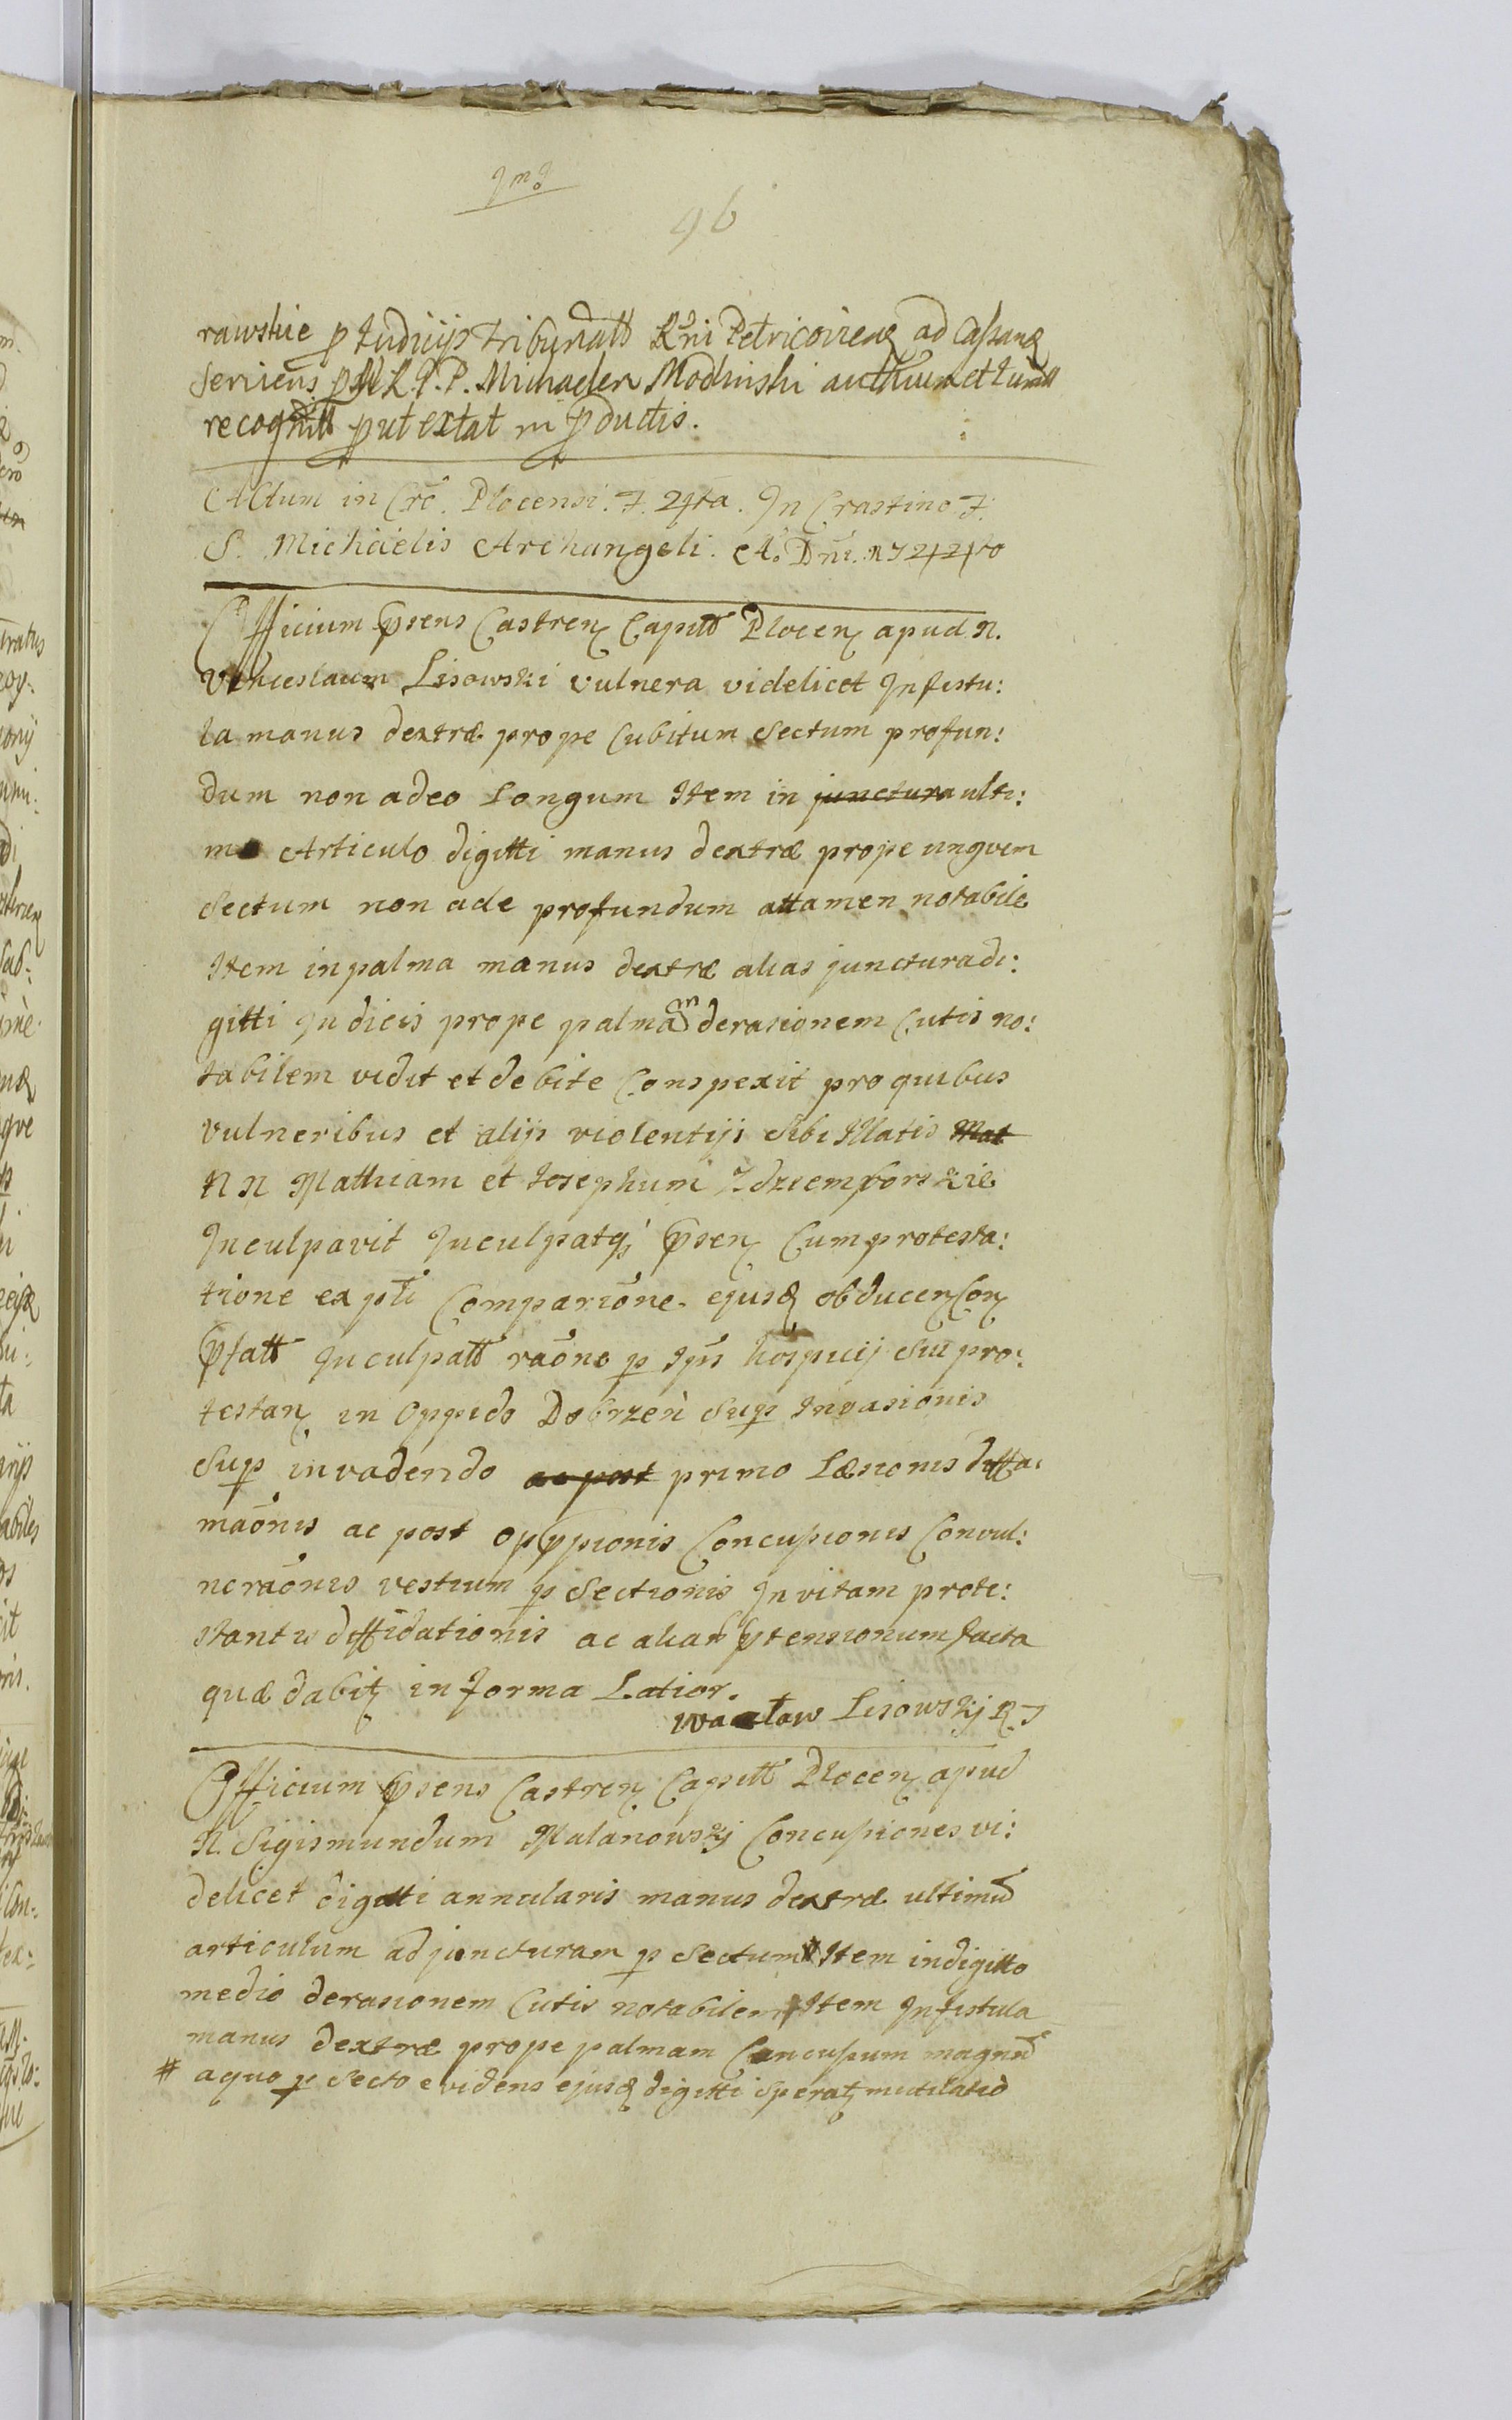 96
rawskie p Iudicijs Tribunatt Rni Petricovien ad Cassand
serviens p M. P. Michaelem Modlinski
recognitt put extat in pductis.
Actum in Cro. Plocensi. F. 24ta. In Crastino F.
S. Michäelis Archangeli. Ao. Dni. 1724to
Officium psens Castren Capitt Plocen apud N.
Venceslaum Lisowski vulnera videlicet In fistu:
la manus dextræ prope Cubitum Sectum profun:
dum non adeo Longum Item in junctura ulti:
mo Articulo digitti manus dextræ prope ungvem
Sectum non ade profundum attamen notabile
Item in palma manus dextræ alias junctura di:
gitti Indicis prope palmam derasionem Cutis no:
tabilem vidit et debite Conspexit pro quibus
vulneribus et alijs violentijs Sibi Illatis Mat
N N Mathiam et Iosephum Zdziemborskie
Inculpavit Inculpatq psen Cum protesta:
tione ex pti Comparione ejusd obducen Con
Pfatt Inculpatt raone p Ipsu hospicij Sui pro:
testan in Oppido Dobrzeń Sup Invasionis
Sup invadendo ac post primo Læsionis diffa:
maonis ac post oppssionis Concussionis Convul:
neraonis vestium p Sectionis In vitam prote:
stantis diffidationis ac aliar ptensionum facta
quæ dabit in forma Latior.
Wacław Lisowskj R
Officium psens Castren Capitt Plocen apud
N. Sigismundum Malanowskj Concussiones vi:
delicet digitti annularis manus dextræ ultimu
articulum ad juncturam p Sectum # Item in digitto
medio derasionem Cutis notabilem Item In fistula
manus dextræ prope palmam Concussum magnu
# a quo p Secto evidens ejusd digitti Sperat mutilatio